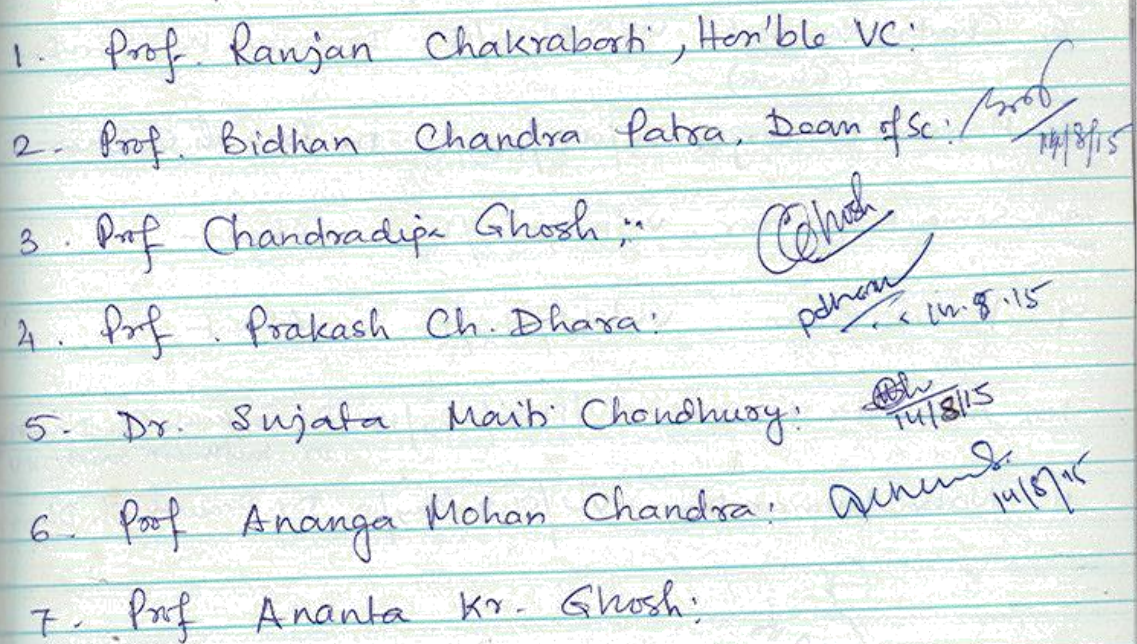 1. Prof. Ranjan Chakraborti, Hon'ble VC:
2. Prof. Bidhan Chandra Patra, Dean of Sc: 14/8/15
3. Prof Chandradipa Ghosh; CGhosh
4. Prof. Prakash Ch. Dhara: 14.8.15
5. Dr. Sujata Maiti Choudhury: 14/8/15
6. Prof Ananga Mohan Chandra: 14/8/15
7. Prof Ananta Kr. Ghosh: